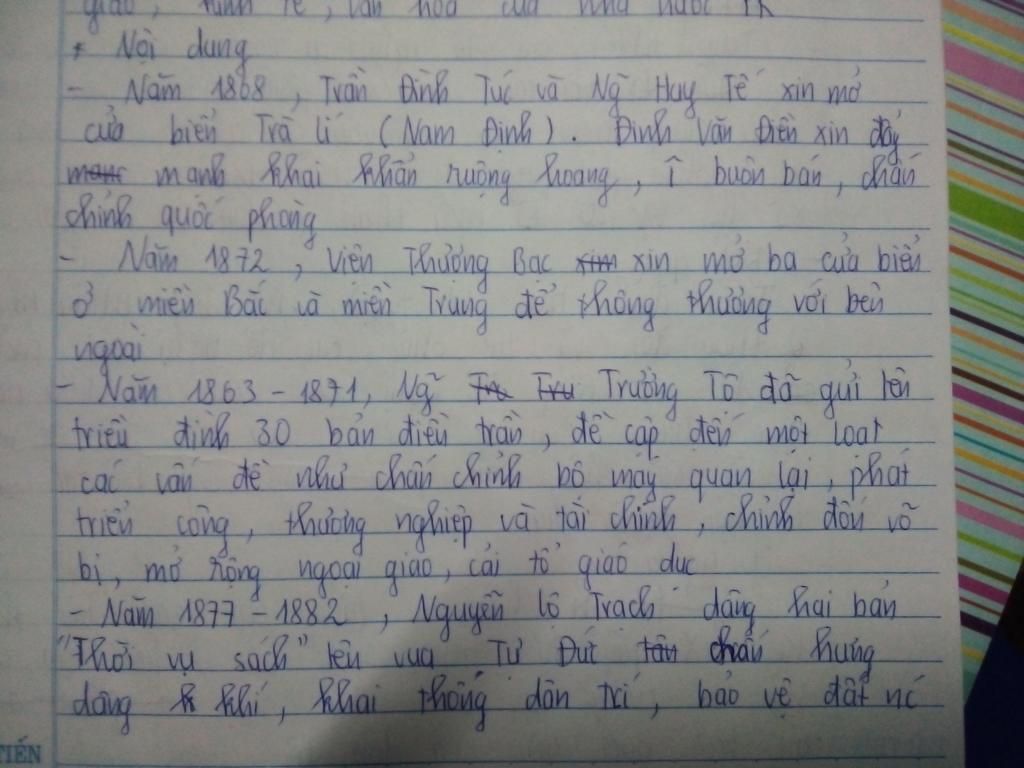 giao, kinh tế, văn hóa của nhà nước PK
* Nội dung
- Năm 1868, Trần Đình Túc và Ng̃ Huy Tế xin mở
cửa biển Trà Lí (Nam Định). Đinh Văn Điền xin đẩy
mạnh khai khẩn ruộng hoang, buôn bán, chấn
chỉnh quốc phòng
- Năm 1872, Viện Thương Bạc xin mở ba cửa biển
ở miền Bắc và miền Trung để thông thương với bên
ngoài
- Năm 1863 - 1871, Ng̃ Trường Tộ đã gửi lên
triều đình 30 bản điều trần, đề cập đến một loạt
các vấn đề như chấn chỉnh bộ máy quan lại, phát
triển công, thương nghiệp và tài chính, chỉnh đốn võ
bị, mở rộng ngoại giao, cải tổ giáo dục
- Năm 1877 - 1882, Nguyễn Lộ Trạch dâng hai bản
"Thời vụ sách" lên vua Tự Đức chấn hưng
dâng khí, khai thông dân trí, bảo vệ đất nc
TIẾN